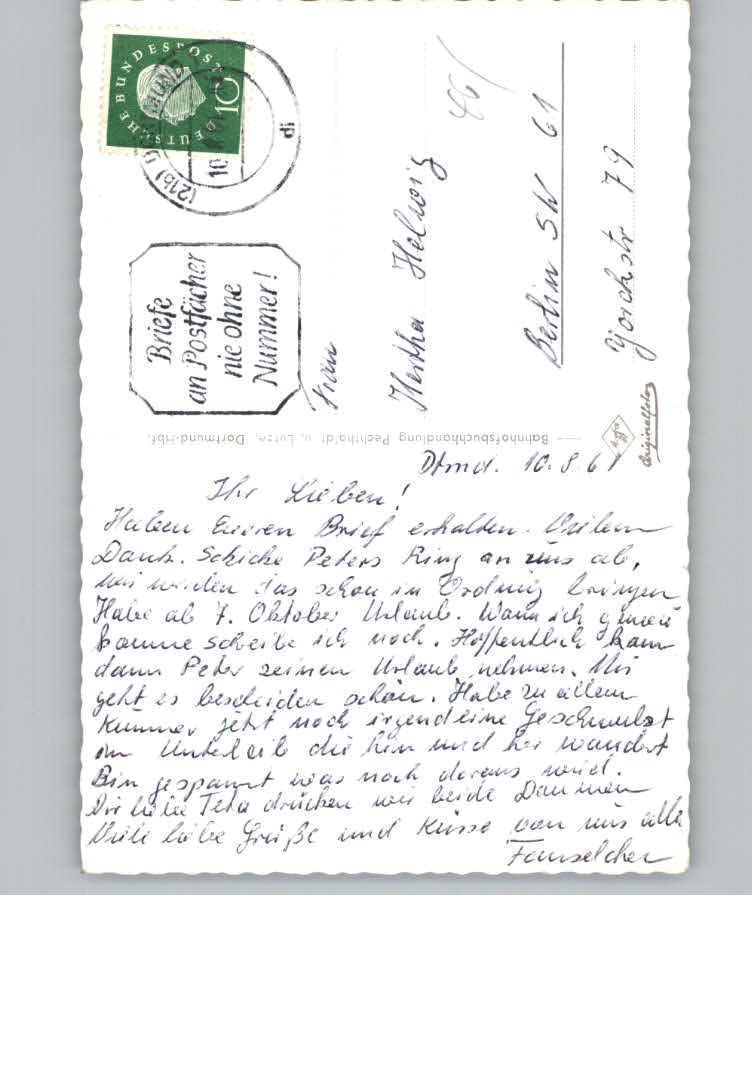 DEUTSCHE BUNDESPOST
10
(21b) DORTMUND
Briefe
an Postfächer
nie ohne
Nummer!
46/
Frau
Hertha Helwig
Berlin SW 61
Yorckstr 79
Bahnhofsbuchhandlung Pechtholdt u. Lutze, Dortmund-Hbf.
Agfa
Originalfoto
Dtmd. 10.8.61
Ihr Lieben!
Haben Eueren Brief erhalten. Vielen
Dank. Schicke Peters Ring an uns ab,
wir werden das schon in Ordnung bringen
Habe ab 7. Oktober Urlaub. Wann ich genau
komme schreibe ich noch. Hoffentlich kann
dann Peter seinen Urlaub nehmen. Mir
geht es bescheiden schön. Habe zu allem
Kummer jetzt noch irgendeine Geschwulst
im Unterleib die hin und her wandert
Bin gespannt was noch daraus wird.
Dir liebe Teta drücken wir beide Daumen
Viele liebe Grüße und Küsse von uns alle